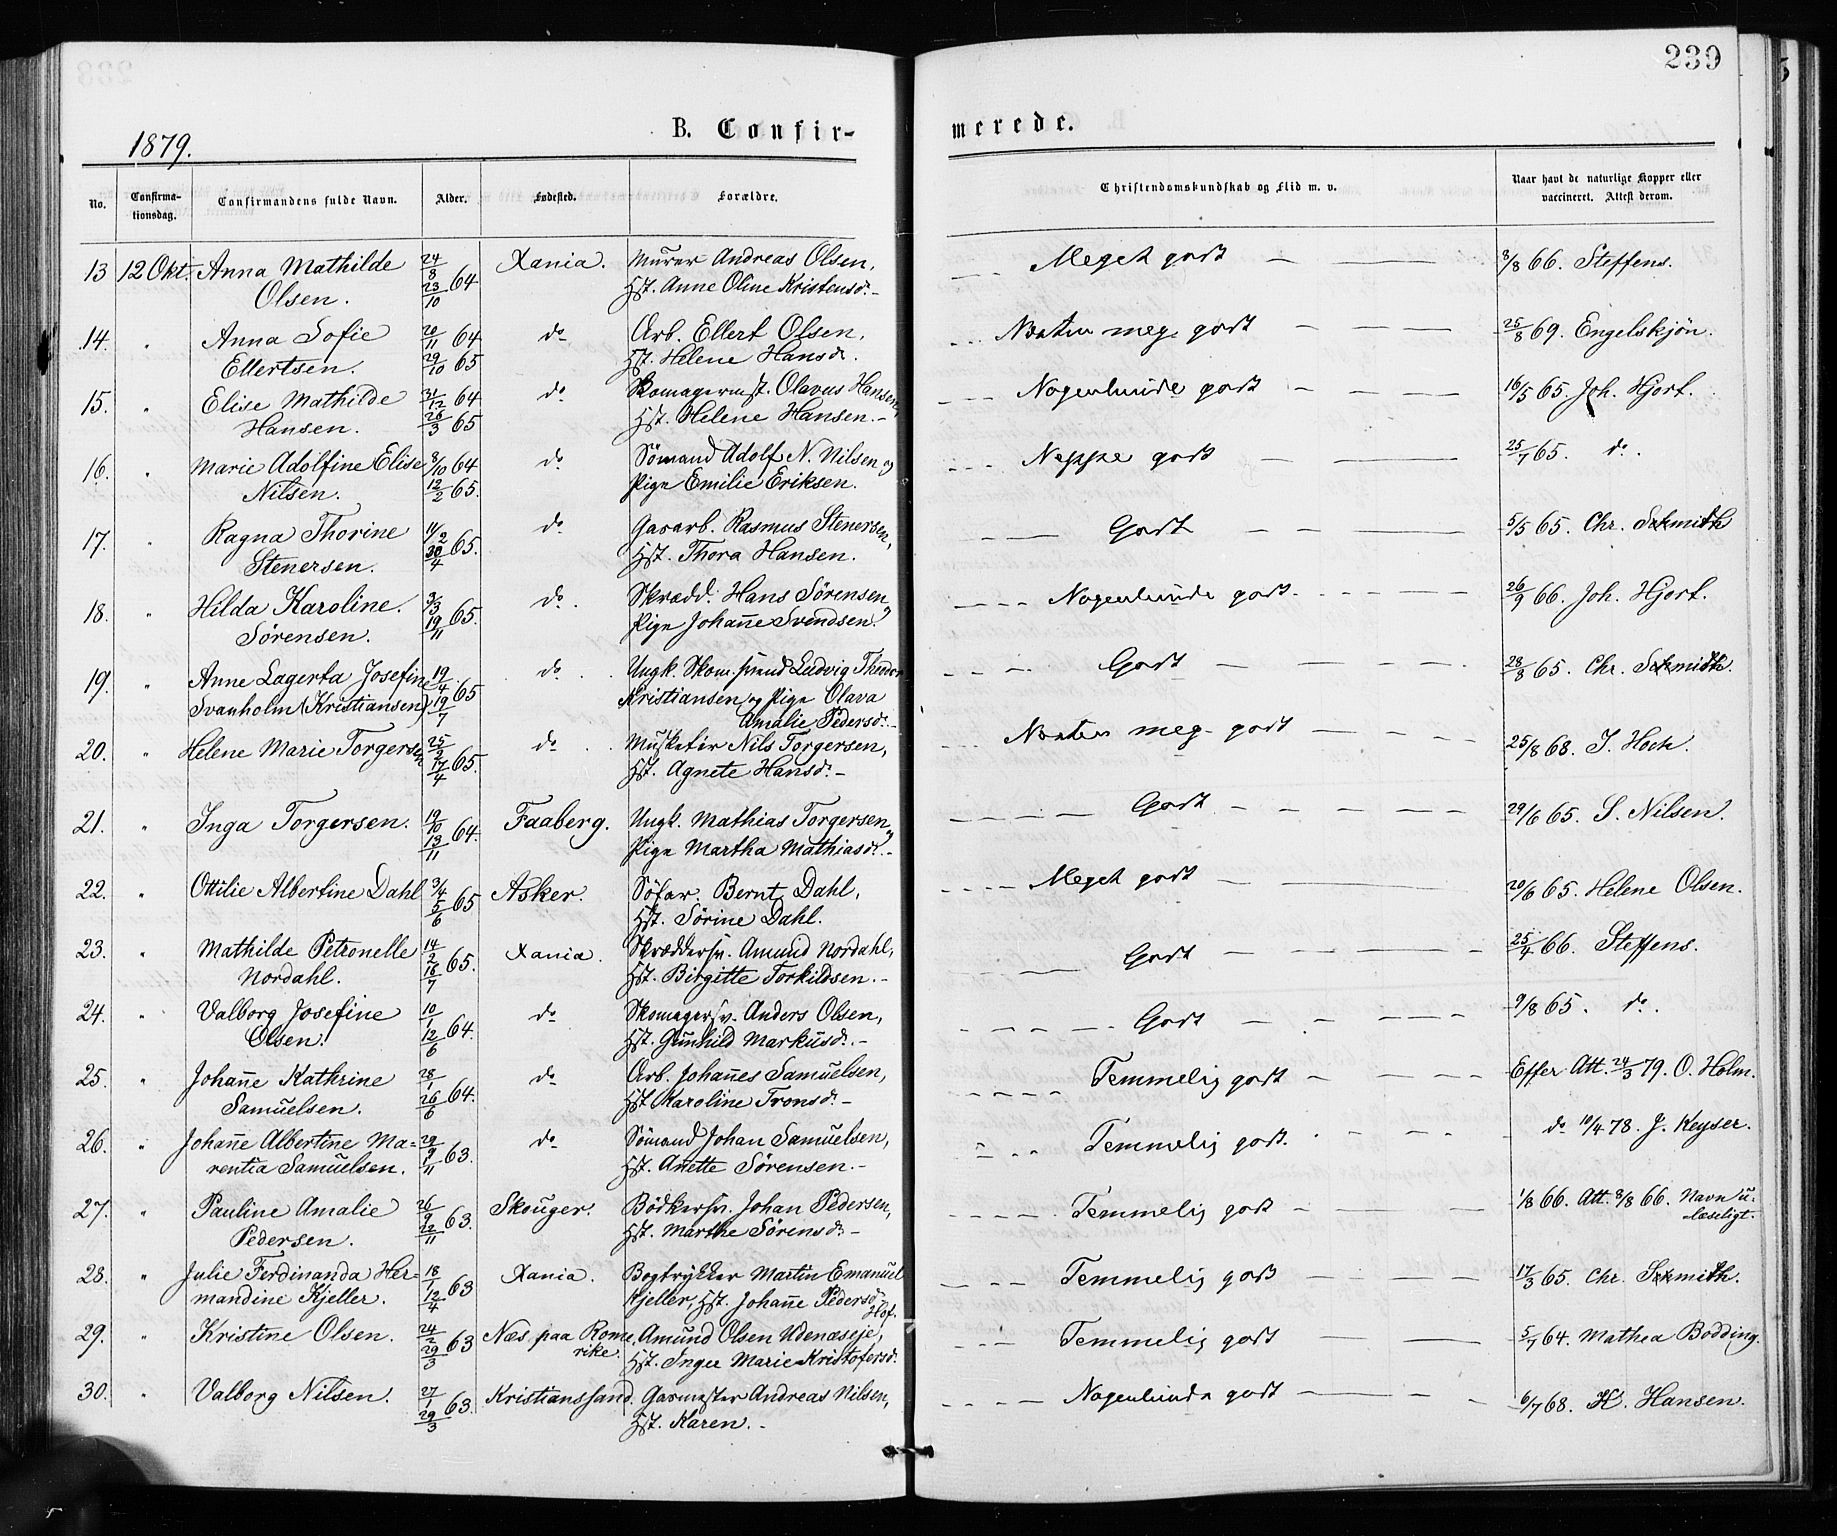 239
1879.
B. Confir-
merede.
No.
Confirma-
tionsdag.
Confirmandens fulde Navn.
Alder.
Fødested.
Forældre.
Christendomskundskab og Flid m. v.
Naar havt de naturlige Kopper eller
vaccineret. Attest derom.
13 12 Okt. Anna Mathilde 24/8 Xania. Murer Andreas Olsen, Meget godt 8/8 66. Steffens.
Olsen. 23/10 64 Hst. Anne Oline Kristensd.
14. " Anna Sofie 20/11 64 do Arb. Ellert Olsen, Næsten meg. godt 25/8 69. Engelskjön.
Ellertsen. 29/10 65 Hst. Helene Hansd.
15. " Elise Mathilde 31/12 64 do Skomagermst. Olavus Hansen, Nogenlunde godt 16/5 65. Joh. Hjort.
Hansen. 26/3 65 Hst. Helene Hansen.
16. " Marie Adolfine Elise 8/10 64 do Sömand Adolf N. Nilsen og Neppe godt 25/7 65. do.
Nilsen. 12/2 65. Pige Emilie Eriksen.
17. " Ragna Thorine 11/2 do Gasarb. Rasmus Stenersen, Godt 5/5 65. Chr. Schmidt
Stenersen. 30/4 65. Hst. Thora Hansen.
18. " Hilda Karoline. 3/3 do. Skrædd. Hans Sörensen og Nogenlunde godt. 26/9 66. Joh. Hjort.
Sørensen. 19/11 65. Pige Johanne Svendsen.
19. " Anne Lagerta Josefine 19/4 do Ungk. Skom.svend Ludvig Theodor Godt 28/8 65. Chr. Schmidt.
Svanholm (Kristiansen) 19/7 65 Kristiansen og Pige Olava
Amalie Pedersd.
20. " Helene Marie Torgersen 25/2 do Musketér Nils Torgersen, Næsten meg. godt 25/8 68. J. Hoch.
17/4 65. Hst. Agnete Hansd.
21. " Inga Torgersen. 19/10 Faaberg. Ungk. Mathias Torgersen og Godt 29/6 65. S. Nilsen.
13/11 64. Pige Martha Mathiasd.
22. " Ottilie Albertine Dahl 3/4 Asker. Söfar. Bernt Dahl, Meget godt 20/6 65. Helene Olsen.
5/6 65 Hst. Sörine Dahl.
23. " Mathilde Petronelle 14/2 Xania. Skræddersv. Amund Nordahl, Godt 25/4 66. Steffens.
Nordahl. 16/7 65. Hst. Birgitte Torkildsen.
24. " Valborg Josefine 10/1 do Skomagersv. Anders Olsen, Godt 9/8 65. do.
Olsen. 12/6 64. Hst. Gunhild Markusd.
25. " Johanne Kathrine 28/1 do Arb. Johannes Samuelsen, Temmelig godt Efter Att. 24/3 79. O. Holm.
Samuelsen. 26/6 64. Hst. Karoline Tronsd.
26. " Johanne Albertine Ma- 29/9 do Sömand Johan Samuelsen, Temmelig godt. do 10/4 78. J. Keyser.
rentia Samuelsen. 63. Hst. Anette Sörensen.
27. " Pauline Amalie 26/9 Skouger. Bödkersv. Johan Pedersen, Temmelig godt 1/8 66. Att. 8/8 66. Navn u-
Pedersen. 12/11 63. Hst. Marthe Sörensd. læseligt.
28. " Julie Ferdinanda Her- 18/1 Xania. Bogtrykker Martin Emanuel Temmelig godt 17/3 65. Chr. Schmidt.
mandine Kjeller. 12/4 63 Kjeller, Hst. Johanne Pedersd.
Hof.
29. " Kristine Olsen. 24/2 Næs paa Rome- Amund Olsen Udenæseje, Temmelig godt 5/7 64. Mathea Bodding.
29/3 63 rike. Hst. Inger Marie Kristofersd.
30. " Valborg Nilsen. 27/1 Kristianssand. Gasmester Andreas Nilsen, Nogenlunde godt 6/7 68. K. Hansen.
29/3 63. Hst. Karen.